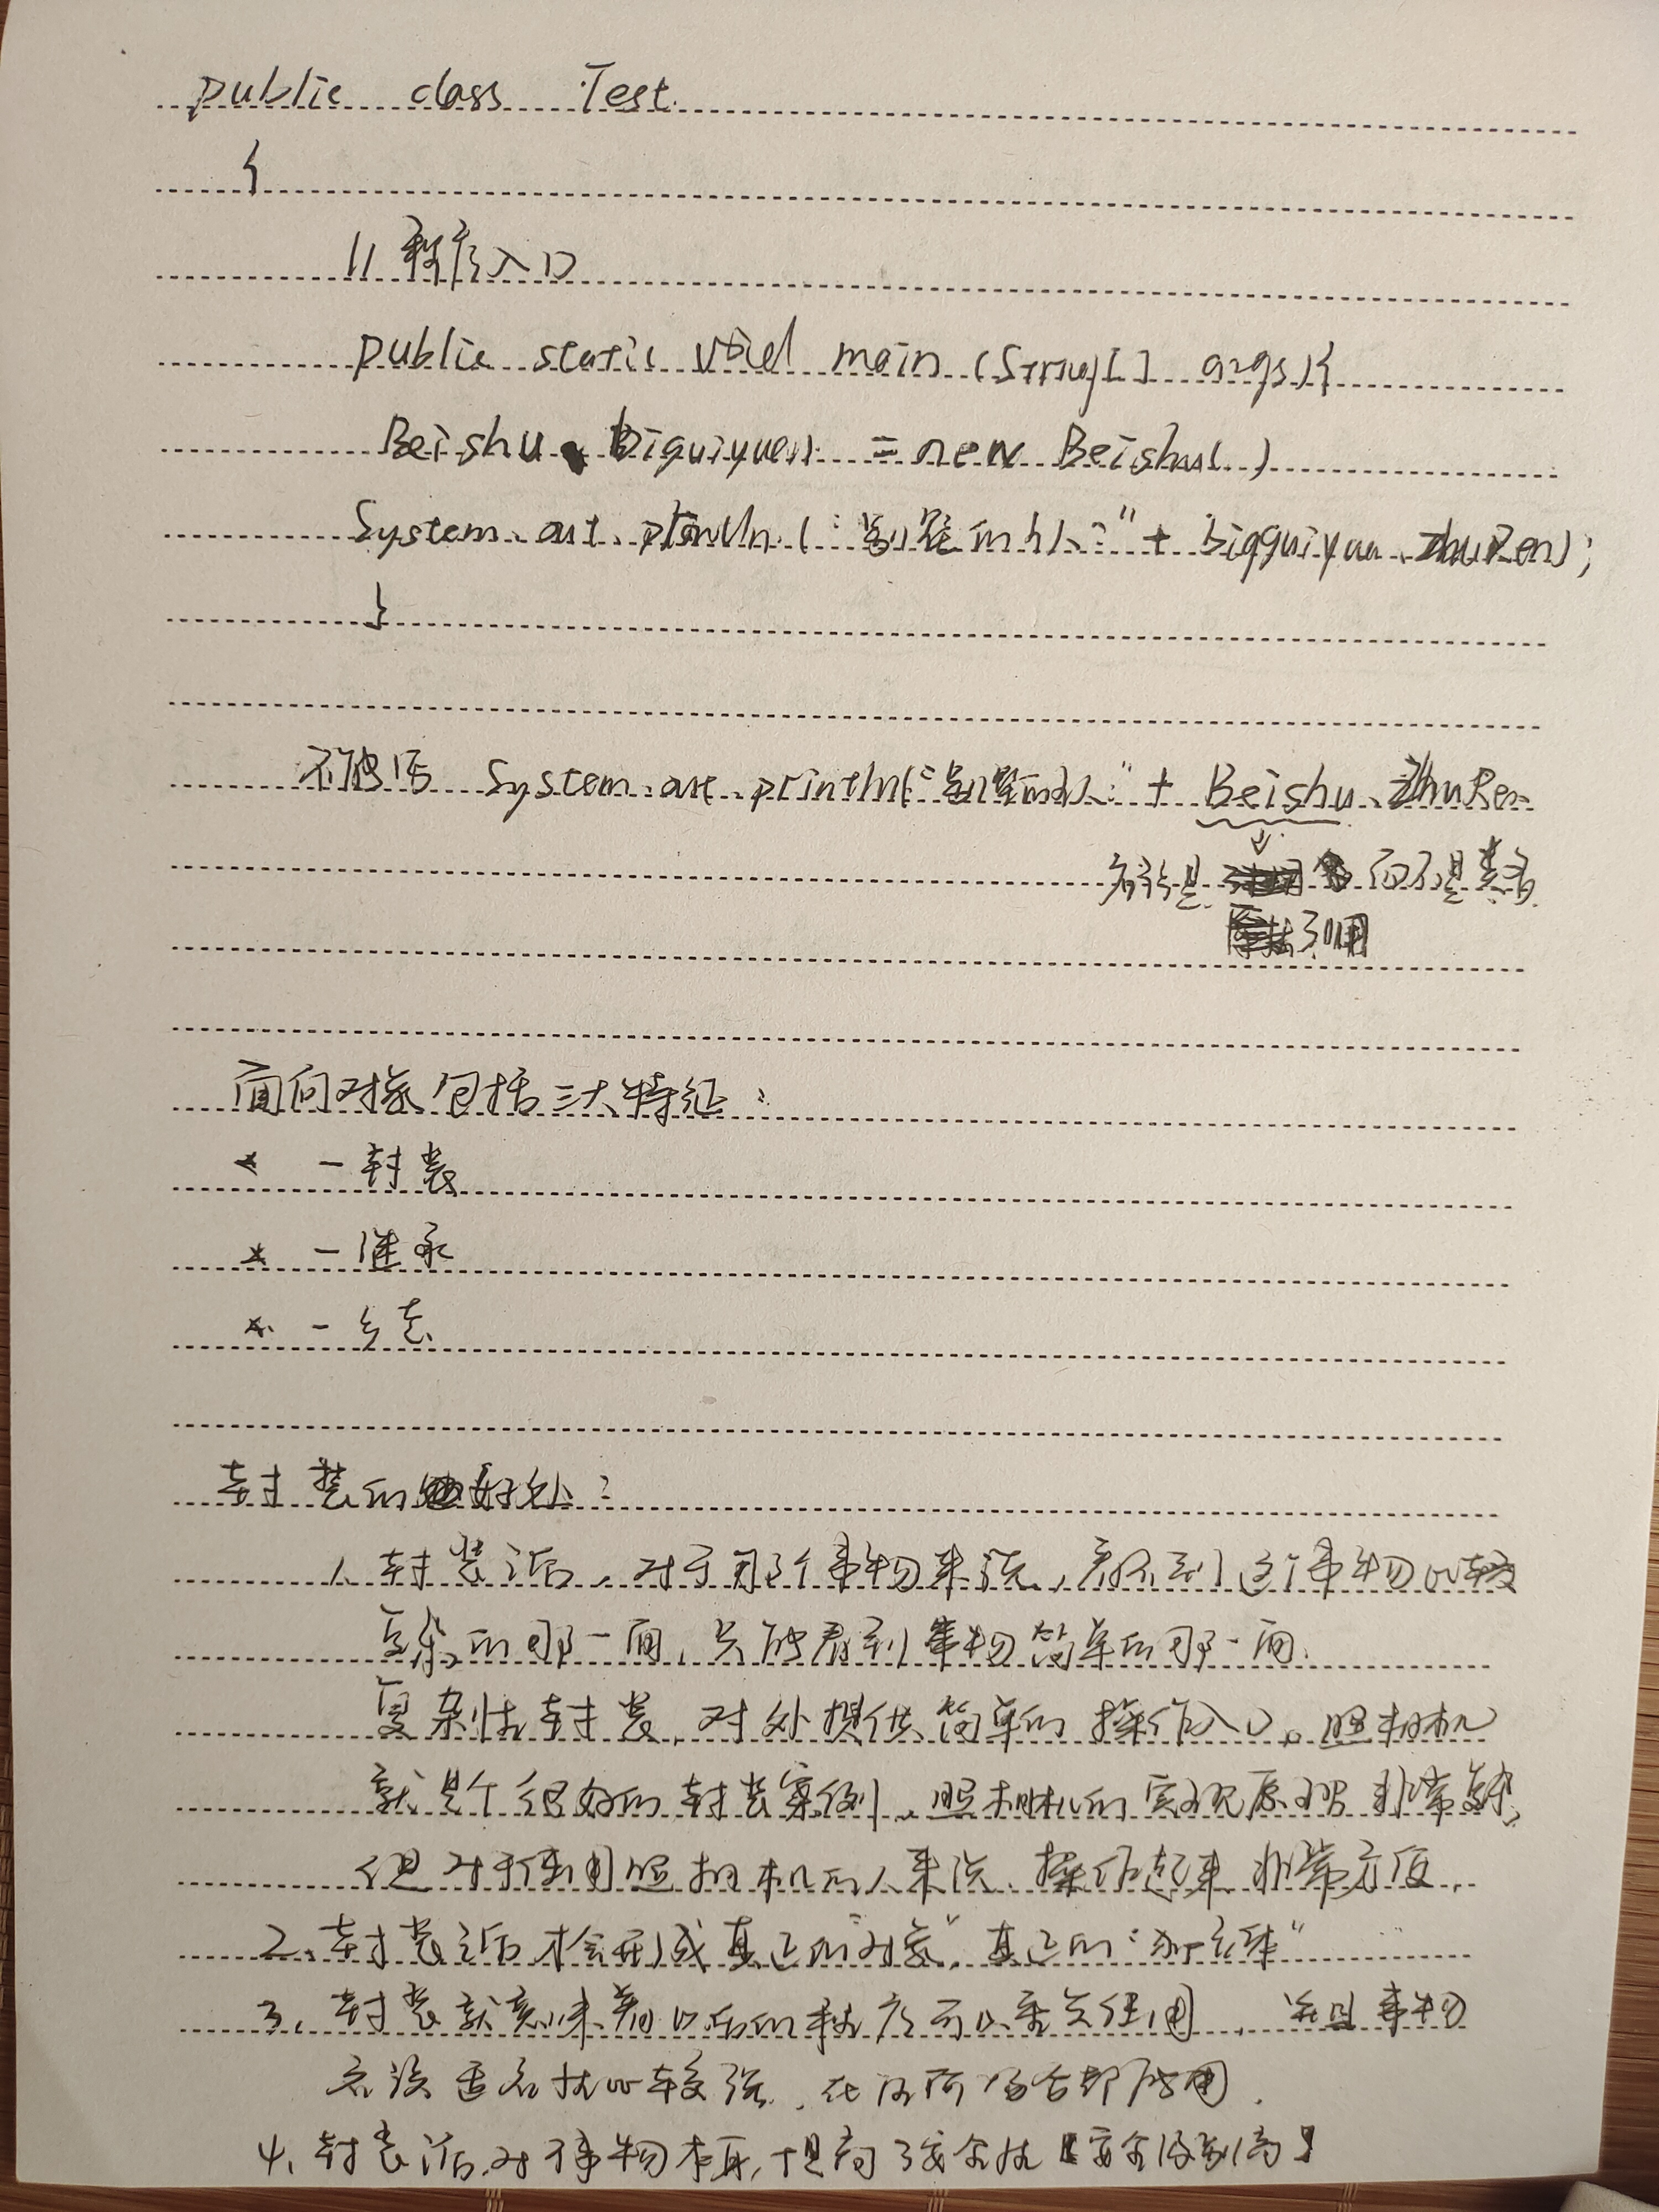 public class Test
{
// 程序入口
public static void main (String[] args){
Beishu biguiyuan = new Beishu()
System.out.println("别墅的主人:" + bigguiyuan.zhuRen);
}
不能写 System.out.println("别墅的主人:" + Beishu.zhuRen
应该是 而不是类名
引用
面向对象包括三大特征:
* - 封装
* - 继承
* - 多态
封装的好处:
1、封装之后,对于那个事物来说,看不到这个事物比较
复杂的那一面,只能看到事物简单的那一面.
复杂性封装,对外提供简单的操作入口。照相机
就是个很好的封装案例,照相机的实现原理非常复杂,
但对于使用照相机的人来说,操作起来非常方便,
2、封装之后才会形成真正的"对象",真正的"独立体"
3、封装就意味着以后的程序可以重复使用,并且事物
应该适应性比较强,在任何场合都能用.
4、封装之后,对于事物本身,提高了安全性【安全级别高】